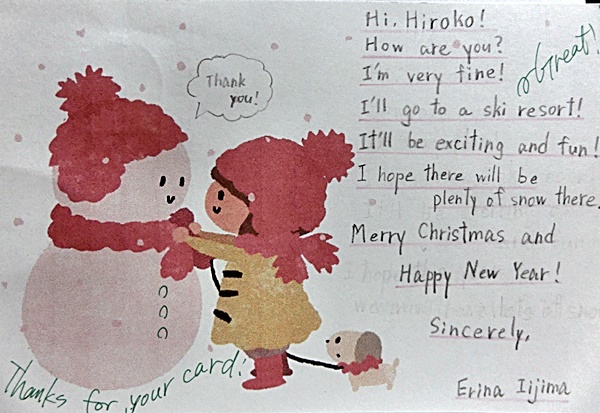 Hi, Hiroko!
How are you?
I'm very fine!
Great!
I'll go to a ski resort!
It'll be exciting and fun!
I hope there will be
plenty of snow there.
Merry Christmas and
Happy New Year!
Sincerely,
Erina Iijima
Thank
you!
Thanks for your card!